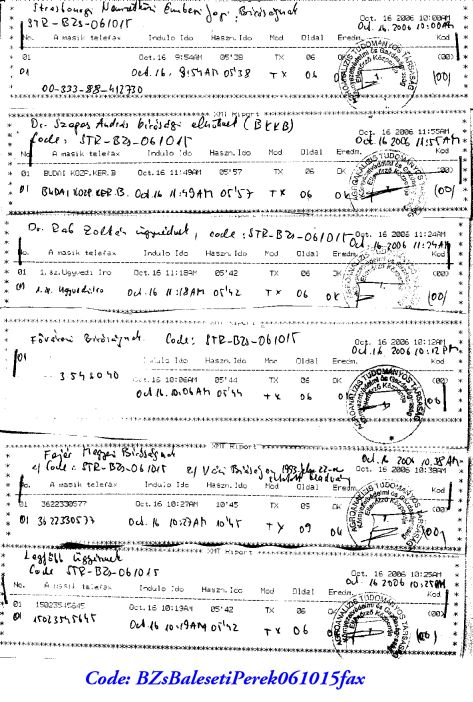 Strasbourgi Nemzetközi Emberi Jogi Bíróságnak
STR-BZs-061015
Oct. 16 2006 10:00AM
Oct. 16 2006 10:00AM
No. A masik telefax Indulo Ido Haszn.Ido Mod Oldal Eredm. Kod
01 Oct.16 9:54AM 05'38 TX 06
01 Oct. 16. 9:54AM 05'38 TX 06 (00)
00-333-88-412730
XMT Riport
Dr. Szapas András bírósági elnöknek (BKKB)
Code: STR-BZs-061015
Oct. 16 2006 11:55AM
Oct. 16 2006 11:55AM
No. A masik telefax Indulo Ido Haszn.Ido Mod Oldal Eredm. Kod
01 BUDAI KOZP.KER.B Oct.16 11:49AM 05'57 TX 06 OK (00)
01 BUDAI KOZP KER.B. Oct. 16 11:49AM 05'57 TX 06 OK (00)
Dr. Rab Zoltán ügyvédnek, code: STR-BZs-061015
Oct. 16 2006 11:24AM
Oct. 16. 2006 11:24AM
No. A masik telefax Indulo Ido Haszn.Ido Mod Oldal Eredm. Kod
01 1.sz.Ugyvedi Iro Oct.16 11:18AM 05'42 TX 06 OK (00)
01 1.sz. Ugyvedi Iro Oct. 16 11:18AM 05'42 TX 06 OK (00)
Fővárosi Bíróságnak Code: STR-BZs-061015
Oct. 16 2006 10:12AM
Oct. 16. 2006 10:12PM
01 Indulo Ido Haszn.Ido Mod Oldal Eredm. Kod
3546040 Oct.16 10:06AM 05'44 TX 06 OK (00)
Oct. 16. 10:06AM 05'44 TX 06 OK (00)
XMT Riport
Fejér Megyei Bíróságnak
Oct. 16 2006 10:38AM
Oct. 16 2006 10:38AM
e/ Code: STR-BZs-061015
No. A masik telefax Indulo Ido Haszn.Ido Mod Oldal Eredm. Kod
01 3622330577 Oct.16 10:27AM 10'45 TX 09 OK (00)
01 3622330577 Oct. 16 10:27AM 10'45 TX 09 OK (00)
XMT Riport
Legfőbb Ügyésznek
Code STR-BZs-061015
Oct. 16 2006 10:25AM
Oct. 16 2006 10:25AM
No. A masik telefax Indulo Ido Haszn.Ido Mod Oldal Eredm. Kod
01 15023545645 Oct.16 10:19AM 05'42 TX 06 OK (00)
01 15023545645 Oct.16 10:19AM 05'42 TX 06 OK (00)
Code: BZsBalesetiPerek061015fax